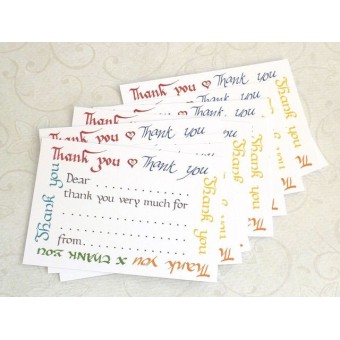 Thank you Thank you
Thank you Thank you
Thank you Thank you
Thank you Thank you
Thank you
Dear ....................
thank you very much for
..............................
from....................
Thank you
Thank you x THANK YOU
Thank you
Thank you